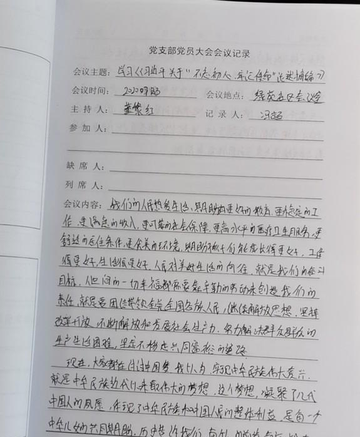 党支部党员大会会议记录
会议主题：学习《习近平关于"不忘初心、牢记使命"论述摘编》
会议时间： 会议地点： 会议室
主持人： 记录人：
参加人：
缺席人：
列席人：
会议内容：我们的人民热爱生活，期盼有更好的教育、更稳定的工
作、更满意的收入、更可靠的社会保障、更高水平的医疗卫生服务、更
舒适的居住条件、更优美的环境，期盼孩子们能成长得更好、工作
得更好、生活得更好。人民对美好生活的向往，就是我们的奋斗
目标。人世间的一切幸福都需要靠辛勤的劳动来创造。我们的
责任，就是要团结带领全党全国各族人民，继续解放思想，坚持
改革开放，不断解放和发展社会生产力，努力解决群众的
生产生活困难，坚定不移走共同富裕的道路
现在，大家都在讨论中国梦，我以为，实现中华民族伟大复兴，
就是中华民族近代以来最伟大的梦想。这个梦想，凝聚了几代
中国人的夙愿，体现了中华民族和中国人民的整体利益，是每一个
中华儿女的共同期盼。历史告诉我们，